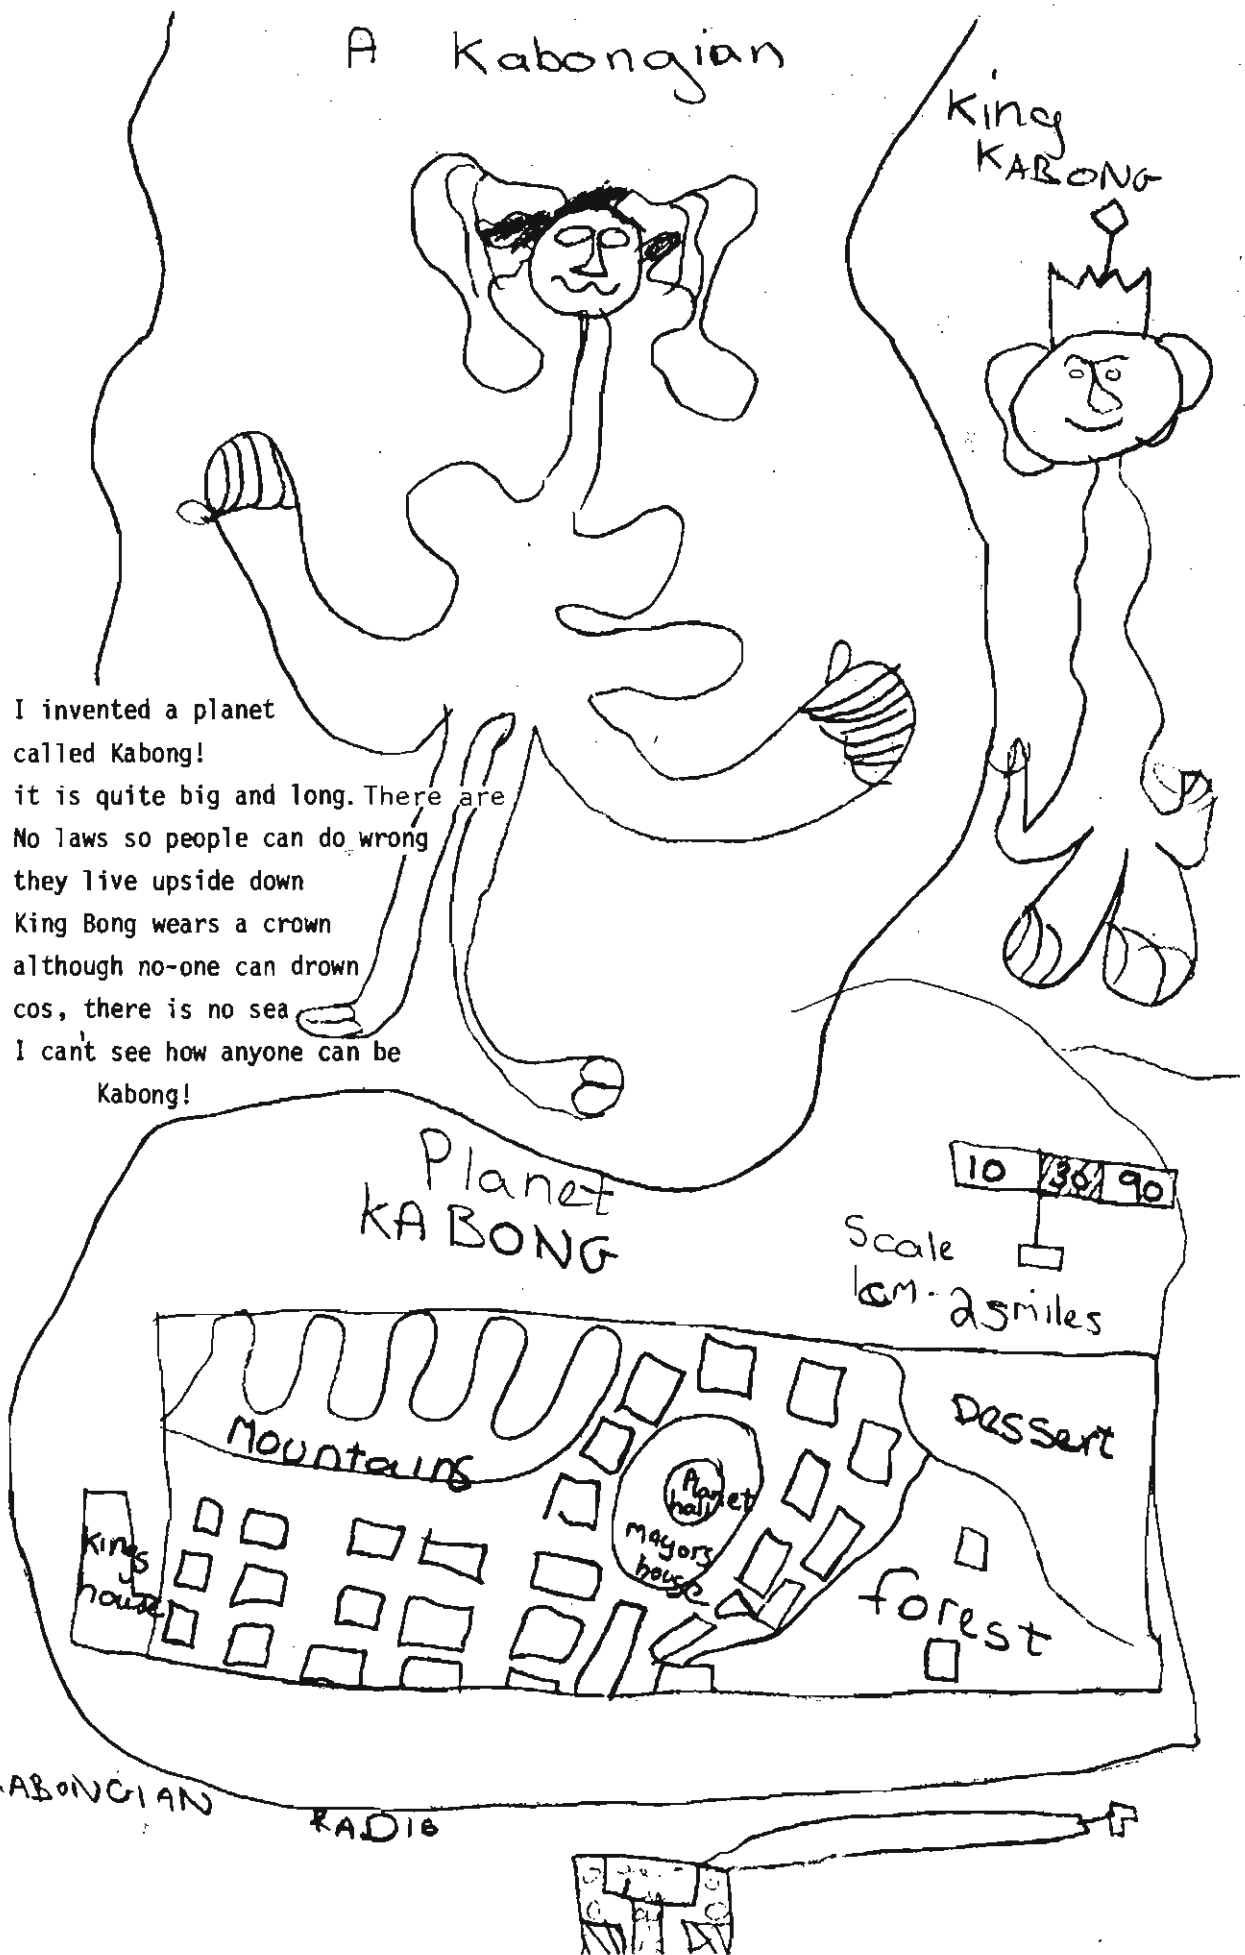 A Kabongian
King
KABONG
I invented a planet
called Kabong!
it is quite big and long. There are
No laws so people can do wrong
they live upside down
King Bong wears a crown
although no-one can drown
cos, there is no sea
I can't see how anyone can be
Kabong!
Planet
KABONG
10 30 90
Scale
1cm. 25miles
Mountains
Dessert
Planet
hall
mayors
house
Kings
house
forest
KABONGIAN
RADIO